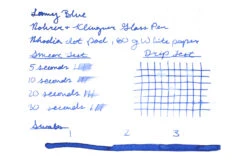 Lamy Blue
Rohrer & Klingner Glass Pen
Rhodia dot pad, 80 g White paper
Smear Test Drip Test
5 seconds
10 seconds
20 seconds
30 seconds
Swabs
1 2 3